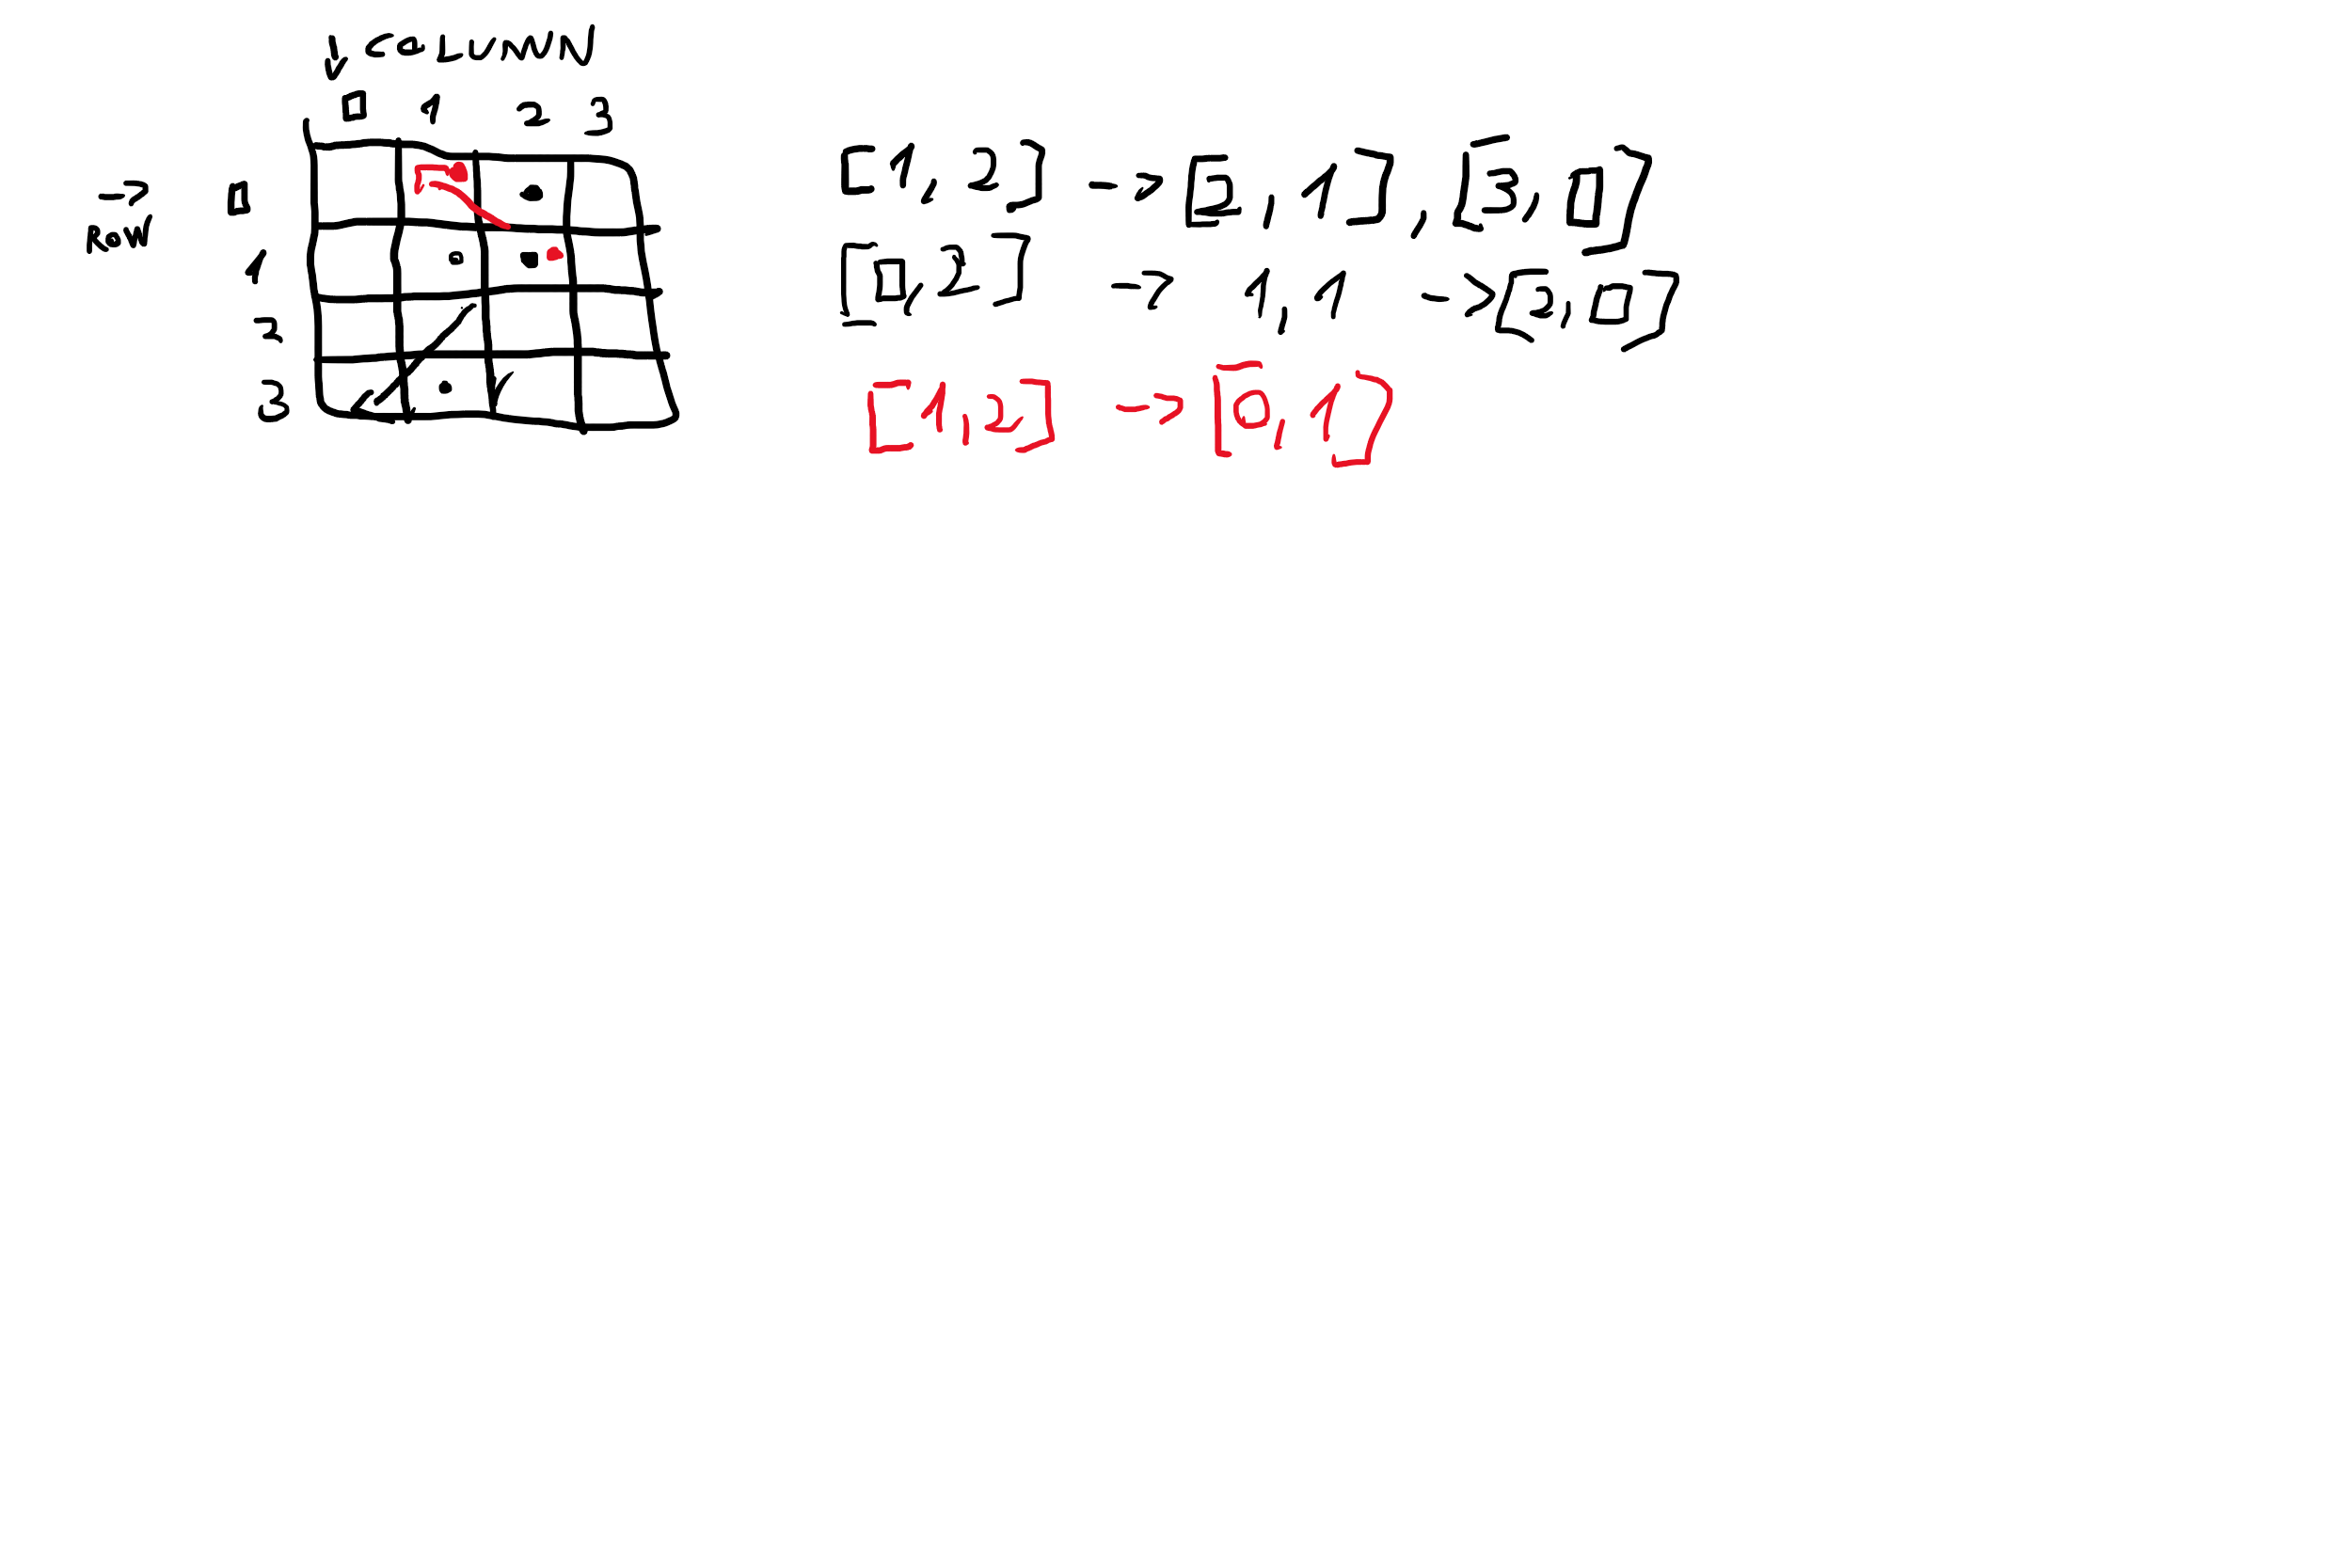 COLUMN
0 1 2 3
→ 0
ROW
1
2
3
[1,2] → [2,1],[3,0]
[0,2] → 1,1 → [2,0]
[1,2] → [0,1]